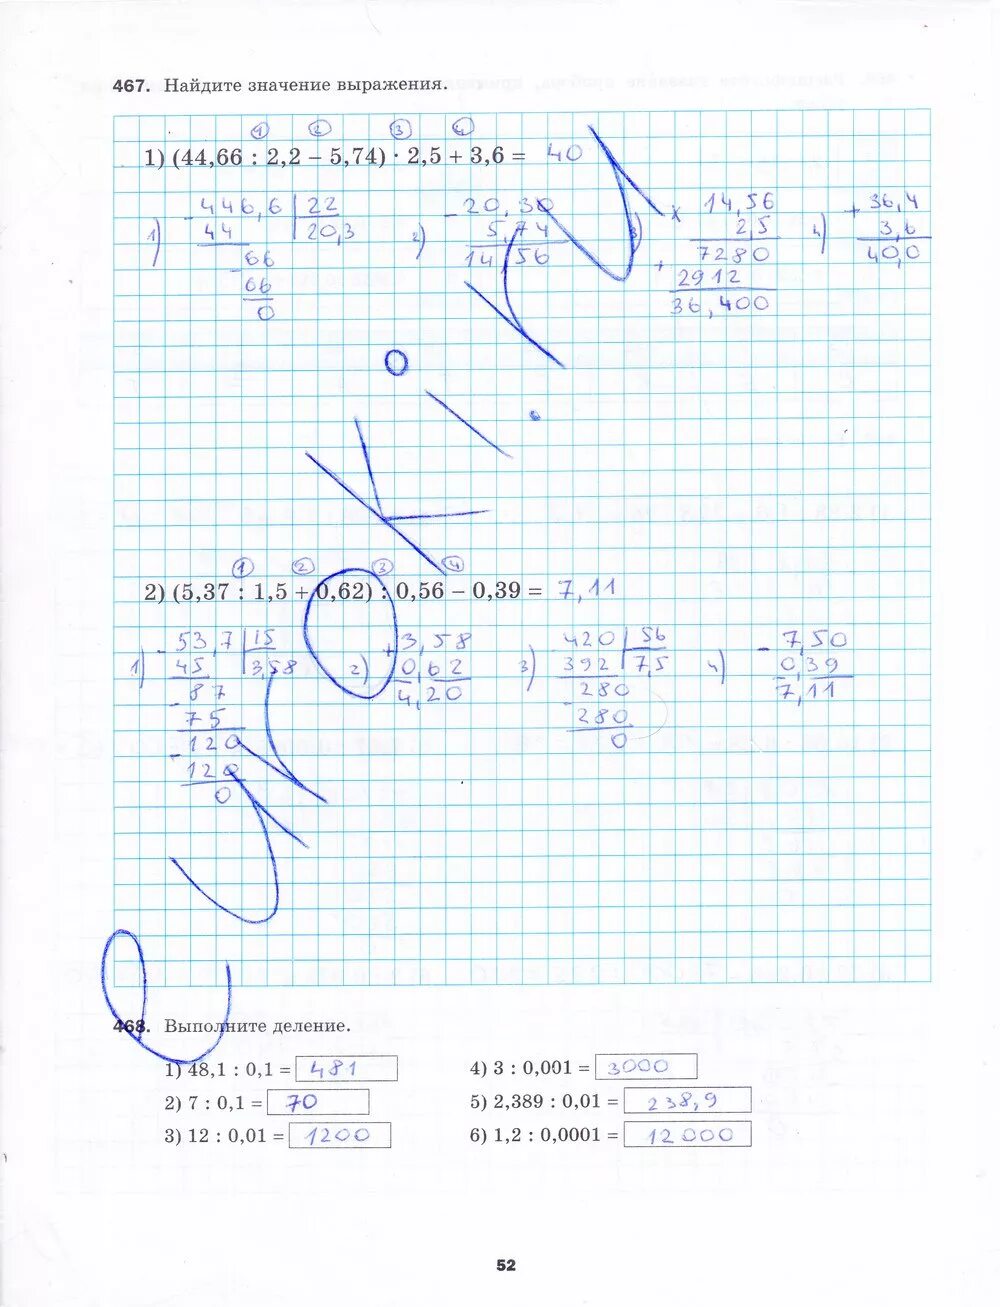 467. Найдите значение выражения.
① ② ③ ④
1) (44,66 : 2,2 – 5,74) · 2,5 + 3,6 = 40
1) 446,6 | 22
- 44 20,3
- 66
66
0
2) - 20,30
5,74
14,56
3) × 14,56
2,5
7280
+ 2912
36,400
4) + 36,4
3,6
40,0
① ② ③ ④
2) (5,37 : 1,5 + 0,62) : 0,56 – 0,39 = 7,11
1) - 53,7 | 15
45 3,58
- 87
75
- 120
120
0
2) + 3,58
0,62
4,20
3) - 420 | 56
392 7,5
- 280
280
0
4) - 7,50
0,39
7,11
468. Выполните деление.
1) 48,1 : 0,1 = 481
2) 7 : 0,1 = 70
3) 12 : 0,01 = 1200
4) 3 : 0,001 = 3000
5) 2,389 : 0,01 = 238,9
6) 1,2 : 0,0001 = 12000
52